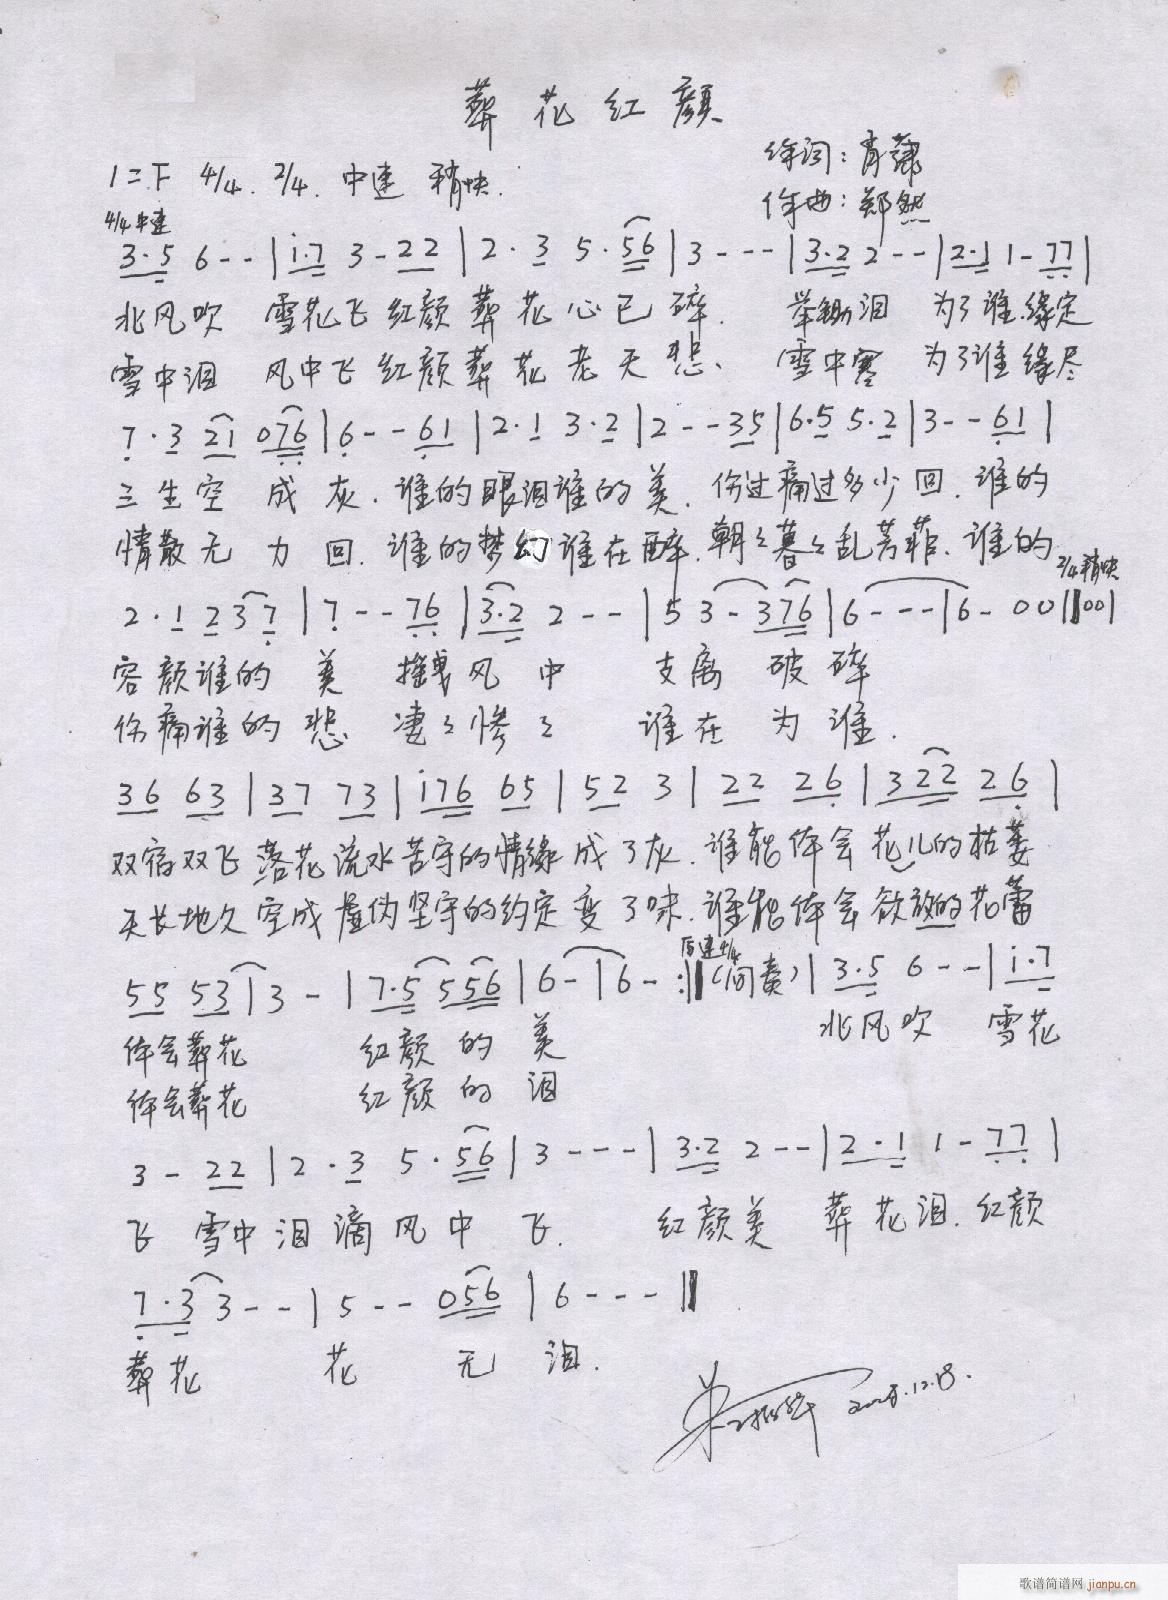 葬花红颜
作词：肖
1=F 4/4. 2/4. 中速 稍快.
作曲：郑然
4/4中速
3·5 6--|i·7 3-22|2·3 5·56|3---|3·2 2--|2·1 1-77|
北风吹 雪花飞红颜葬花心已碎. 举锄泪 为了谁.缘定
雪中泪 风中飞红颜葬花老天悲、 雪中寒 为了谁缘尽
7·3 21 076|6--61|2·1 3·2|2--35|6·5 5·2|3--61|
三生空 成灰.谁的眼泪谁的美.伤过痛过多少回.谁的
情散无 力回.谁的梦幻谁在醉.朝々暮々乱芳菲.谁的
2/4稍快
2·1 237|7--76|3·2 2--|5 3-376|6---|6-00‖00|
容颜谁的 美 摇曳风中 支离破碎
伤痛谁的悲 凄々惨々 谁在为谁.
36 63|37 73|i76 65|52 3|22 26|322 26|
双宿双飞落花流水苦守的情缘成了灰.谁能体会花儿的枯萎
天长地久空成虚伪坚守的约定变了味.谁能体会欲放的花蕾
原速4/4
55 53|3-|7·5 556|6-|6-:‖(间奏)|3·5 6--|i·7
体会葬花 红颜的美 北风吹 雪花
体会葬花 红颜的泪
3-22|2·3 5·56|3---|3·2 2--|2·1 1-77|
飞 雪中泪滴风中飞. 红颜美 葬花泪.红颜
7·3 3--|5--056|6---‖
葬花 花 无 泪.
12.18.
歌谱简谱网 jianpu.cn